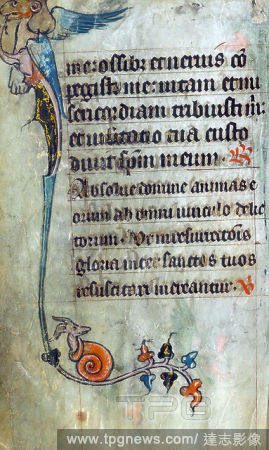 me· ossibz et neruis cō
pegisti me· uitam et mi
sericordiam tribuisti m̄·
et uisitatio tua custo
diuit sp̄m meum·
Absolue domine animas e
orum ab omni uinculo delic
torum· Vt in resurrectōis
gloria inter sanctos tuos
resuscitari mereantur·
TPG
www.tpgnews.com/達志影像